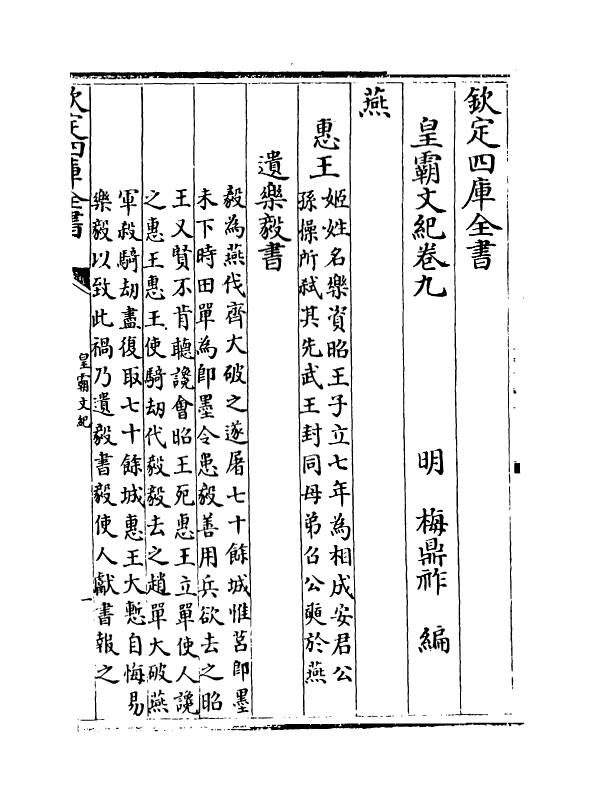 欽定四庫全書
皇霸文紀卷九
明 梅鼎祚 編
燕
惠王
姬姓名樂資昭王子立七年為相成安君公
孫操所弑其先武王封同母弟召公奭於燕
遺樂毅書
毅為燕伐齊大破之遂屠七十餘城惟莒即墨
未下時田單為即墨令患毅善用兵欲去之昭
王又賢不肯聽讒會昭王死惠王立單使人讒
之惠王惠王使騎劫代毅毅去之趙單大破燕
軍殺騎劫盡復取七十餘城惠王大慙自悔易
樂毅以致此禍乃遺毅書毅使人獻書報之
欽定四庫全書
皇霸文紀
一